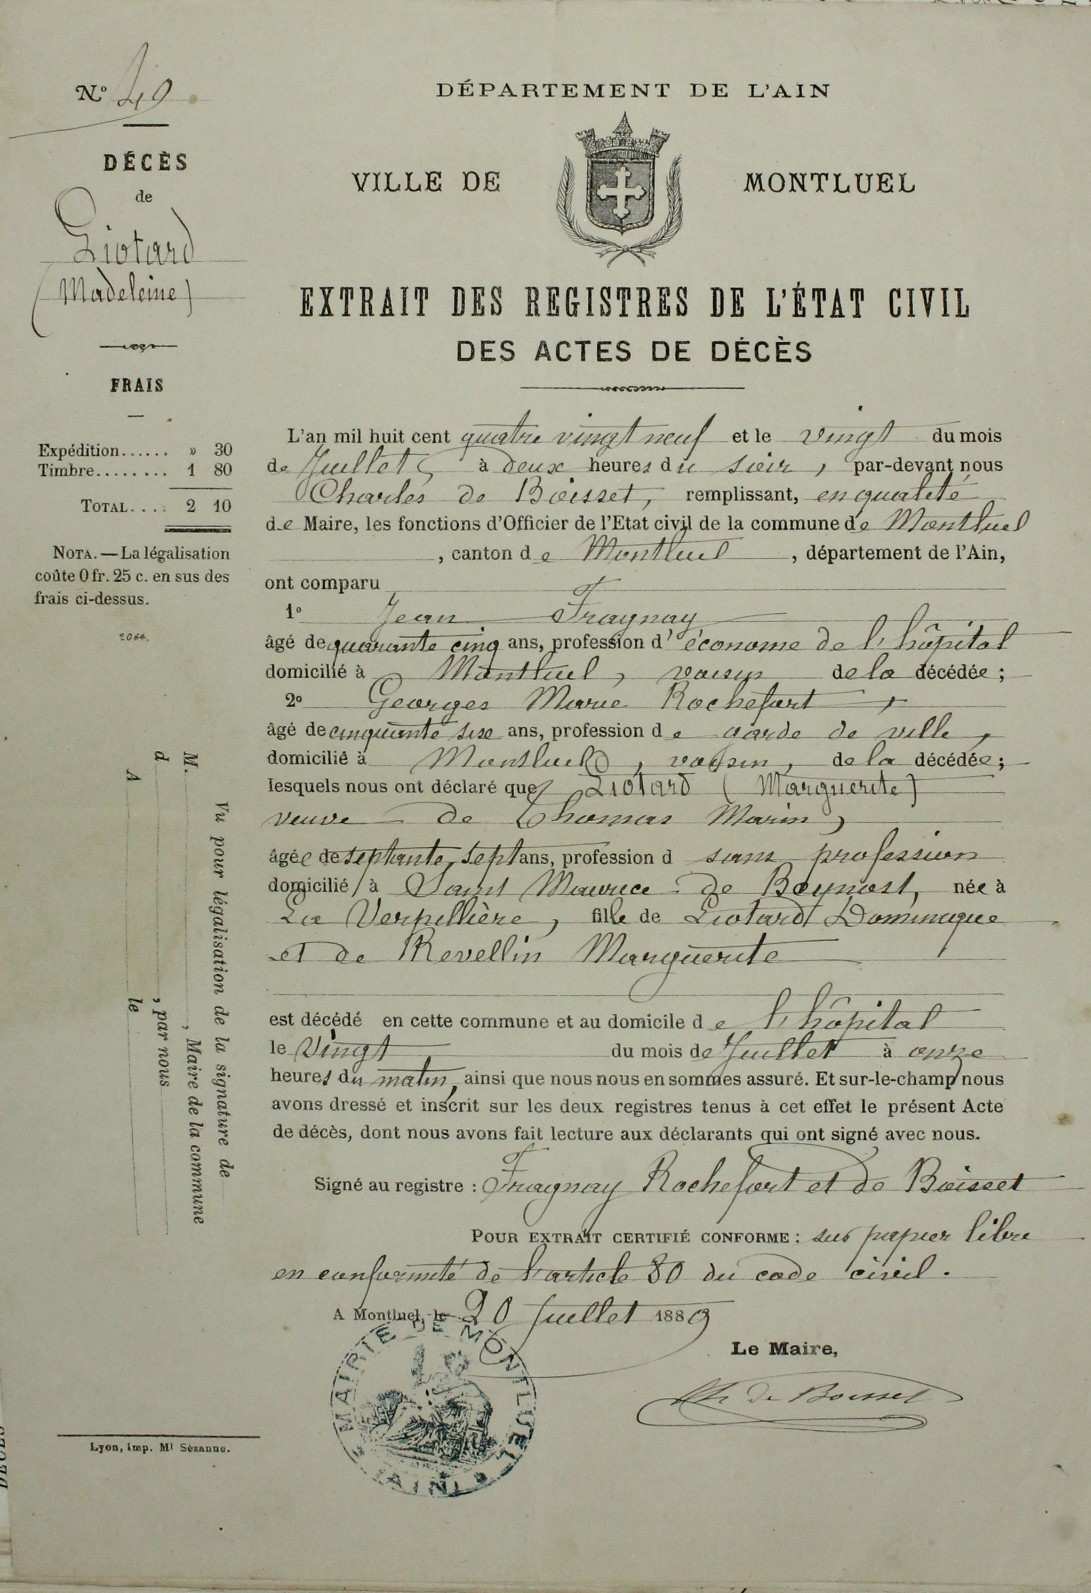 N° 49
DÉCÈS
de
Liotard
(Madeleine)
FRAIS
Expédition...... » 30
Timbre........ 1 80
TOTAL.... 2 10
NOTA. — La légalisation
coûte 0 fr. 25 c. en sus des
frais ci-dessus.
Vu pour légalisation de la signature de
M. , Maire de la commune
d , par nous
A le
Lyon, imp. Mt Sézanne.
DÉPARTEMENT DE L'AIN
VILLE DE MONTLUEL
EXTRAIT DES REGISTRES DE L'ÉTAT CIVIL
DES ACTES DE DÉCÈS
L'an mil huit cent quatre vingt neuf et le vingt du mois
de Juillet, à deux heures du soir, par-devant nous
Charles de Boisset, remplissant, en qualité
de Maire, les fonctions d'Officier de l'Etat civil de la commune de Montluel
, canton de Montluel, département de l'Ain,
ont comparu
1° Jean Fragnay
âgé de quarante cinq ans, profession d'économe de l'hôpital
domicilié à Montluel, voisin de la décédée;
2° Georges Marie Rochefort
âgé de cinquante six ans, profession de garde de ville,
domicilié à Montluel, voisin, de la décédée;
lesquels nous ont déclaré que Liotard (Marguerite)
veuve de Thomas Marin,
âgée de septante sept ans, profession d sans profession
domicilié à Saint Maurice de Beynost, née à
La Verpillière, fille de Liotard Dominique
et de Revellin Marguerite
est décédé en cette commune et au domicile de l'hôpital
le vingt du mois de Juillet à onze
heures du matin, ainsi que nous nous en sommes assuré. Et sur-le-champ nous
avons dressé et inscrit sur les deux registres tenus à cet effet le présent Acte
de décès, dont nous avons fait lecture aux déclarants qui ont signé avec nous.
Signé au registre : Fragnay Rochefort et de Boisset
POUR EXTRAIT CERTIFIÉ CONFORME : sur papier libre
en conformité de l'article 80 du code civil.
A Montluel, le 20 Juillet 1889
Le Maire,
Ch de Boisset
MAIRIE DE MONTLUEL (AIN)